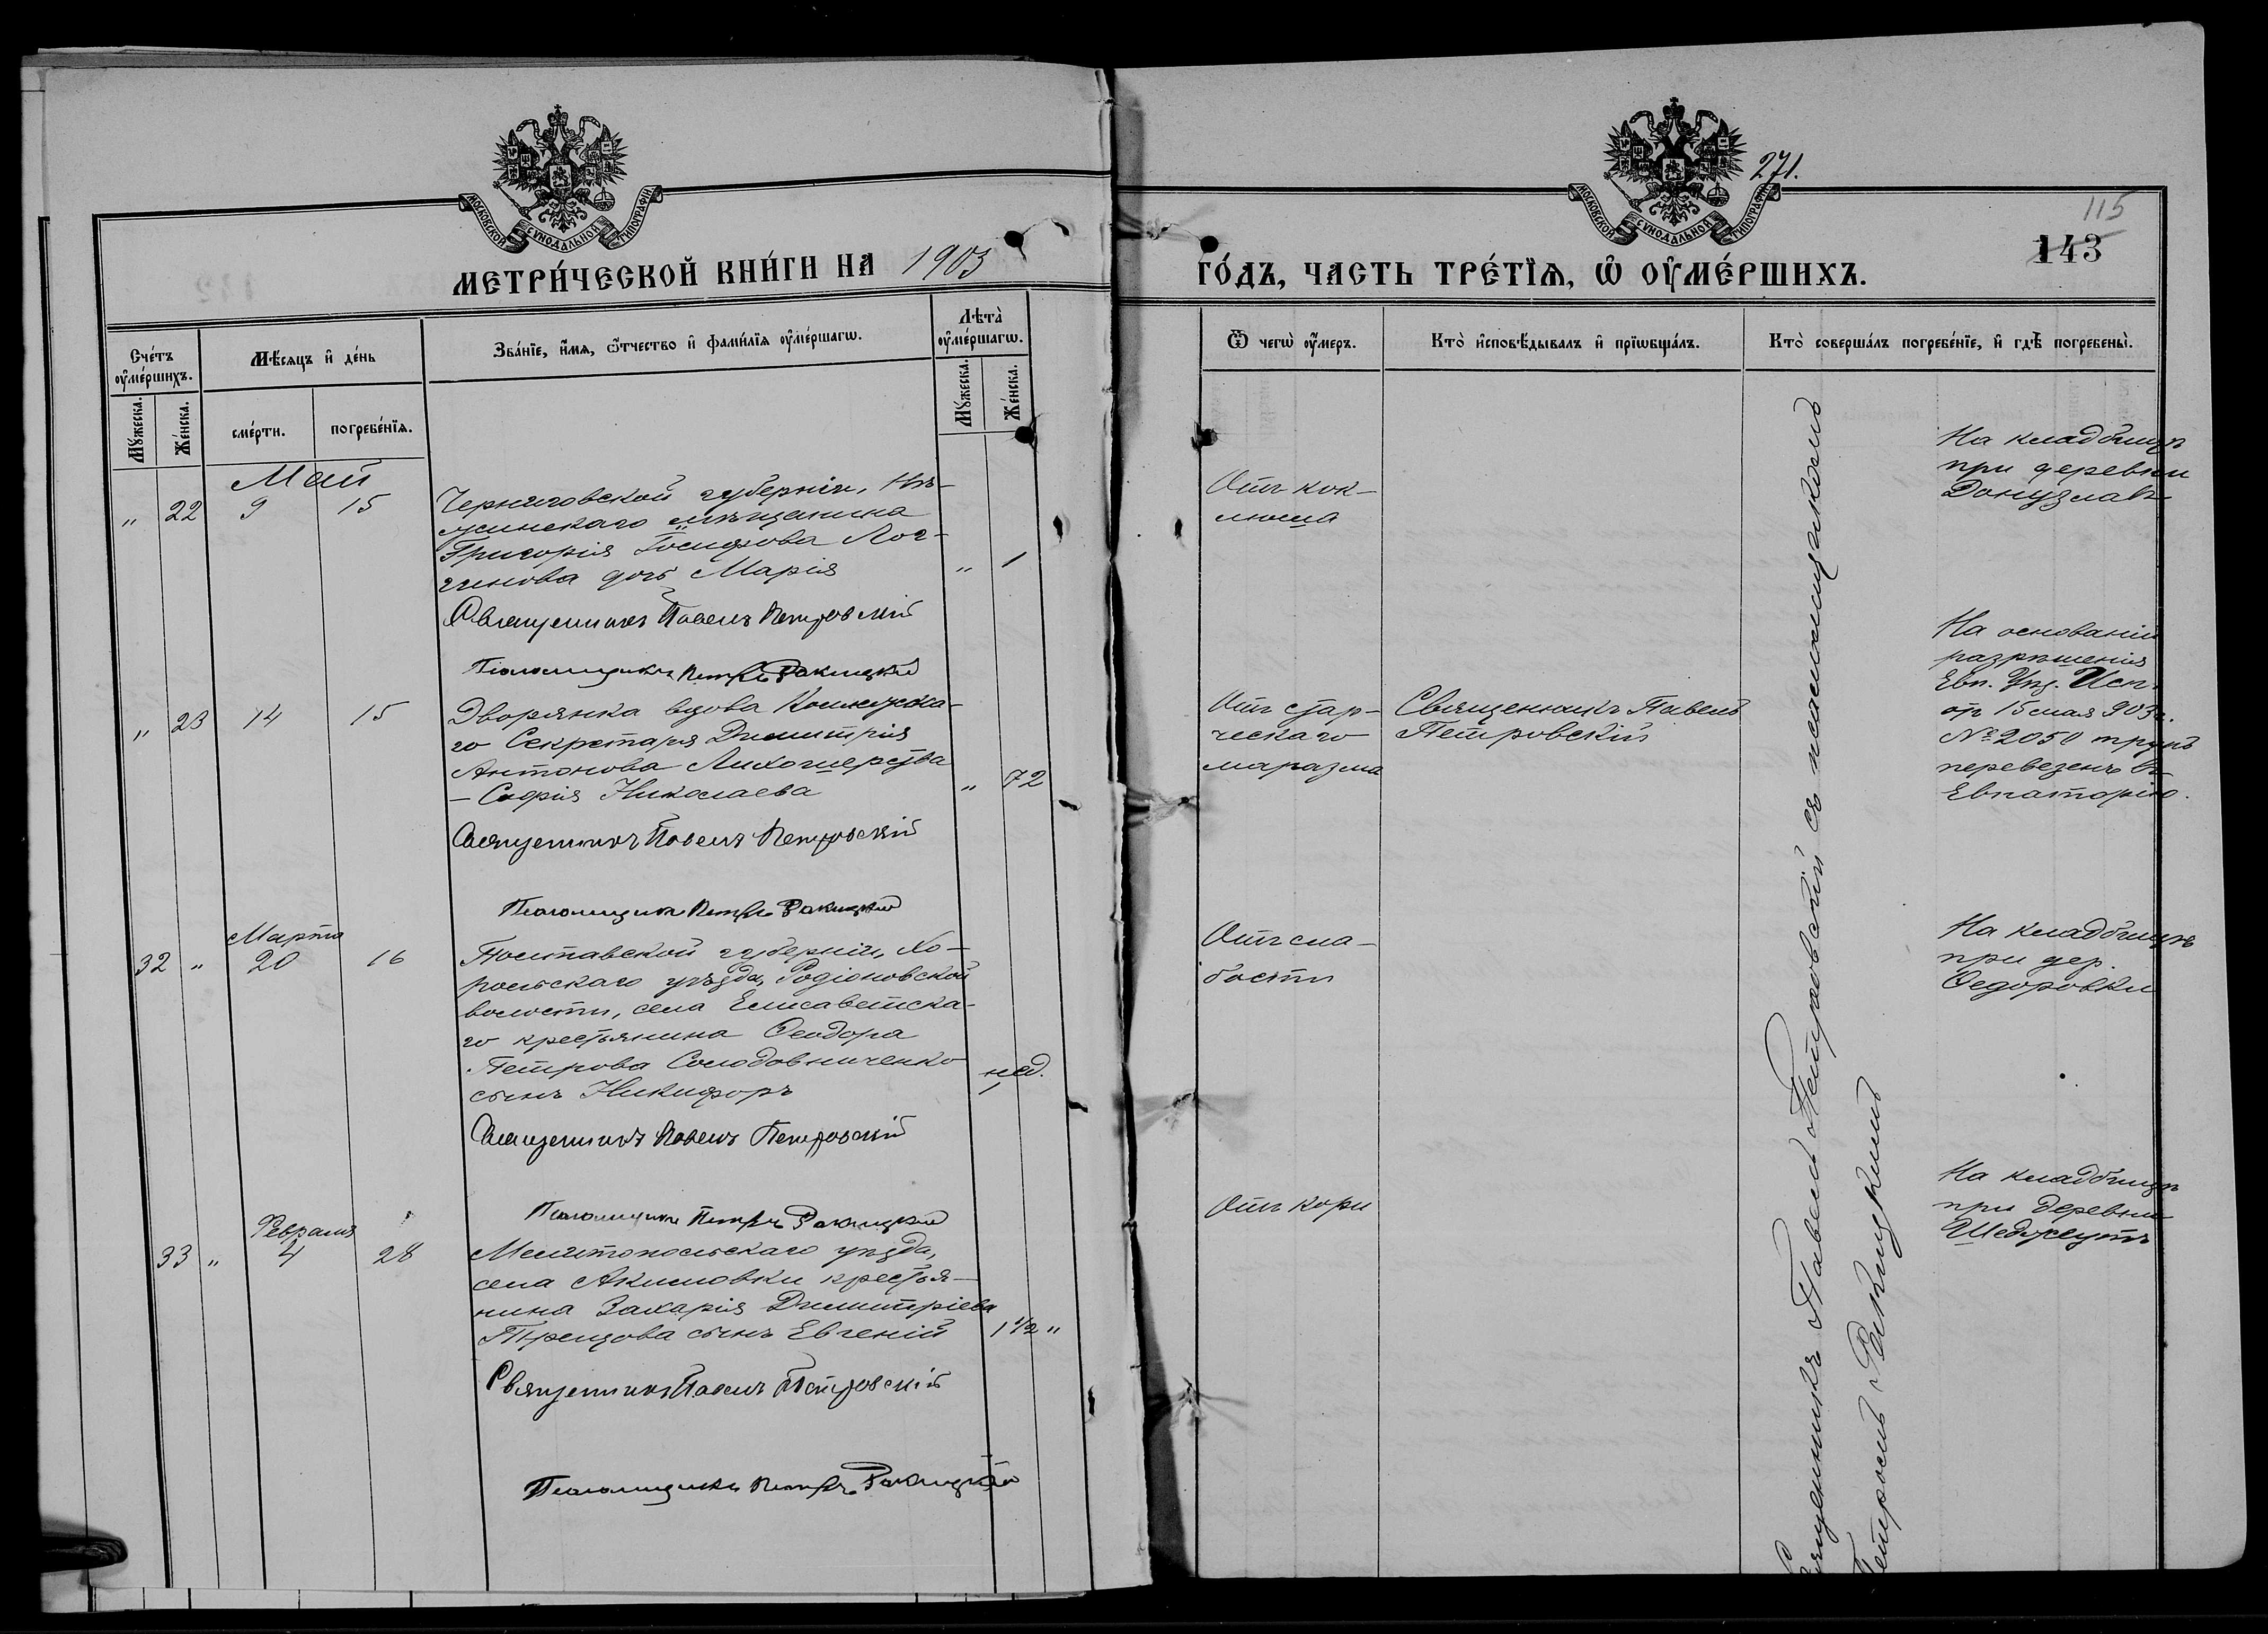 271.
115
143
МОСКОВСКОЙ СѴНОДАЛЬНОЙ ТИПОГРАФІИ
МОСКОВСКОЙ СѴНОДАЛЬНОЙ ТИПОГРАФІИ
МЕТРИ́ЧЕСКОЙ КНИ́ГИ НА 1903
ГО́ДЪ, ЧАСТЬ ТРЕ́ТІѦ, Ѡ҆ ОУ҆МЕ́РШИХЪ.
Сче́тъ оу҆ме́ршихъ.
Мѣ́сяцъ и҆ де́нь
Зва́нїе, и҆́мя, ѻ҆́тчество и҆ фами́лїя оу҆ме́ршагѡ.
Лѣта̀ оу҆ме́ршагѡ.
Мꙋ́жеска.
Же́нска.
сме́рти.
погребе́нїѧ.
Мꙋ́жеска.
Же́нска.
Ѿ чегѡ̀ оу҆́меръ.
Кто̀ и҆сповѣ́дывалъ и҆ прїѡбща́лъ.
Кто̀ соверша́лъ погребе́нїе, и҆ гдѣ̀ погребены̀.
Май
" 22 9 15
Черниговской губерніи, Нѣ-
жинскаго мѣщанина
Григорія Іосифова Лог-
гинова дочь Марія " 1
Священникъ Павелъ Петровскій
Псаломщикъ Петръ Ракицкій
Отъ кок-
люша
На кладбищѣ
при деревни
Донузлавъ
" 23 14 15
Дворянка вдова Коллежска-
го Секретаря Димитрія
Антонова Лихошерства
- Софія Николаева " 72
Священникъ Павелъ Петровскій
Псаломщикъ Петръ Ракицкій
Отъ стар-
ческаго
маразма
Священникъ Павелъ
Петровскій
На основаніи
разрѣшенія
Евп. Уѣз. Исп.
отъ 15 мая 903 г.
№ 2050 трупъ
перевезенъ въ
Евпаторію.
Марта
32 " 20 16
Полтавской губерніи, Хо-
рольскаго уѣзда, Родіоновской
волости, села Елисаветска-
го крестьянина Ѳеодора
Петрова Солодовниченко
сынъ Никифоръ
нед.
1
Священникъ Павелъ Петровскій
Псаломщикъ Петръ Ракицкій
Отъ сла-
бости
На кладбищѣ
при дер.
Ѳедоровки
Февраля
33 " 4 28
Мелитопольскаго уѣзда,
села Акимовки крестья-
нина Захарія Димитріева
сынъ Евгеній 1 1/2 "
Священникъ Павелъ Петровскій
Псаломщикъ Петръ Ракицкій
Отъ кори
На кладбищѣ
при Деревни
Священникъ Павелъ Петровскій съ псаломщикомъ
Петромъ Ракицкимъ